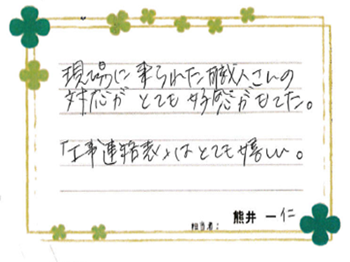 現場に来られた職人さんの
対応が とても好感がもてた。
「工事連絡表」はとても嬉しい。
担当者： 熊井 一仁